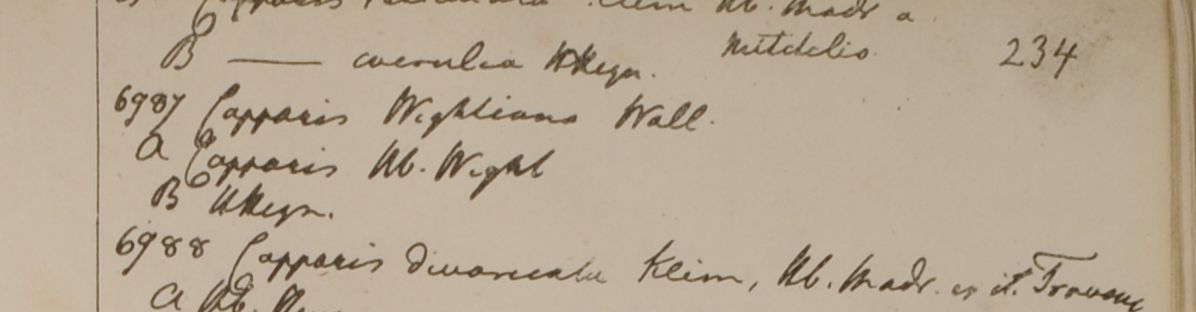 Capparis Klein Hb. Madr a
B —— coerulea HHeyn. Mitdelis 234
6987 Capparis Wightiana Wall.
a Capparis Hb. Wight
B HHeyn.
6988 Capparis divaricata Klein, Hb. Madr. ex it. Travanc
a Hb.